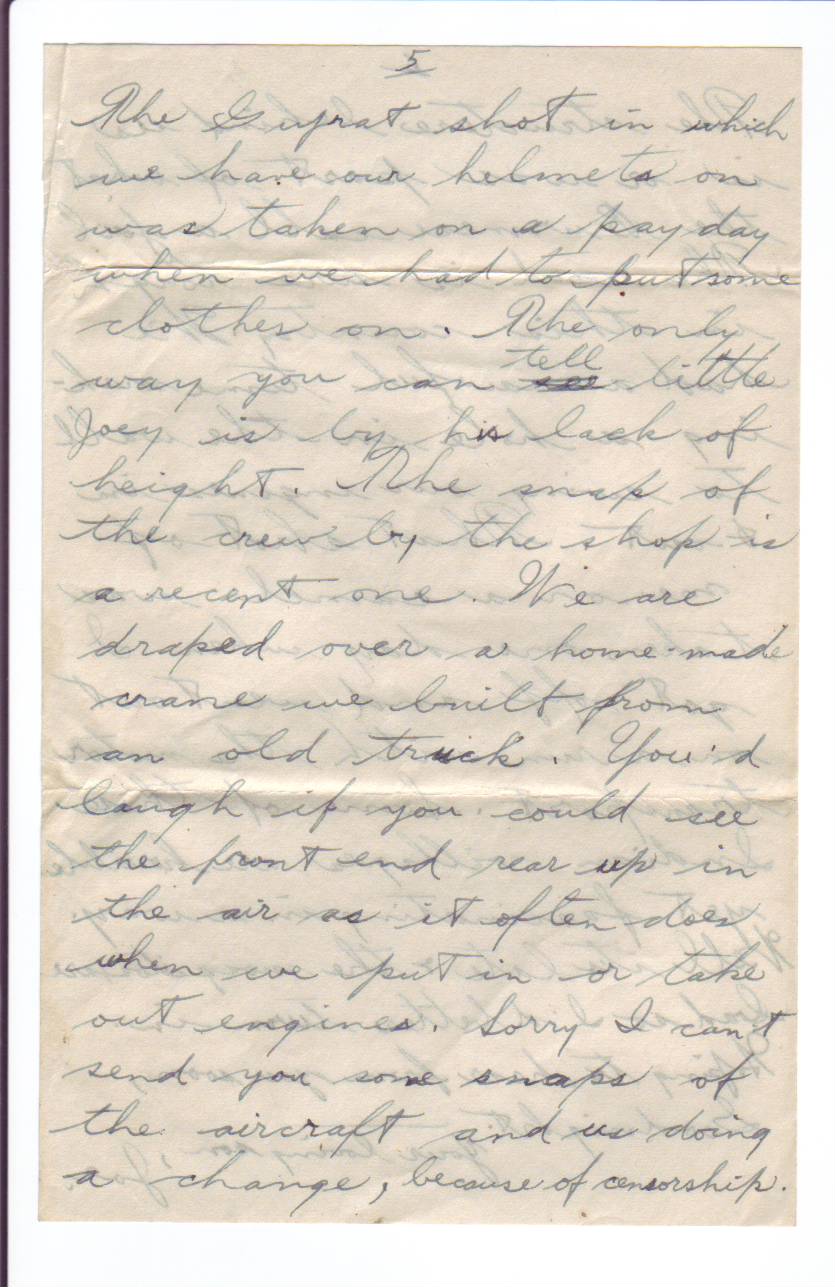 5
The Gujrat shot in which
we have our helmets on
was taken on a payday
when we had to put some
clothes on. The only
tell
way you can see little
Joey is by his lack of
height. The snap of
the crew by the shop is
a recent one. We are
draped over a home-made
crane we built from
an old truck. You'd
laugh if you could see
the front end rear up in
the air as it often does
when we put in or take
out engines. Sorry I can't
send you some snaps of
the aircraft and us doing
a change, because of censorship.